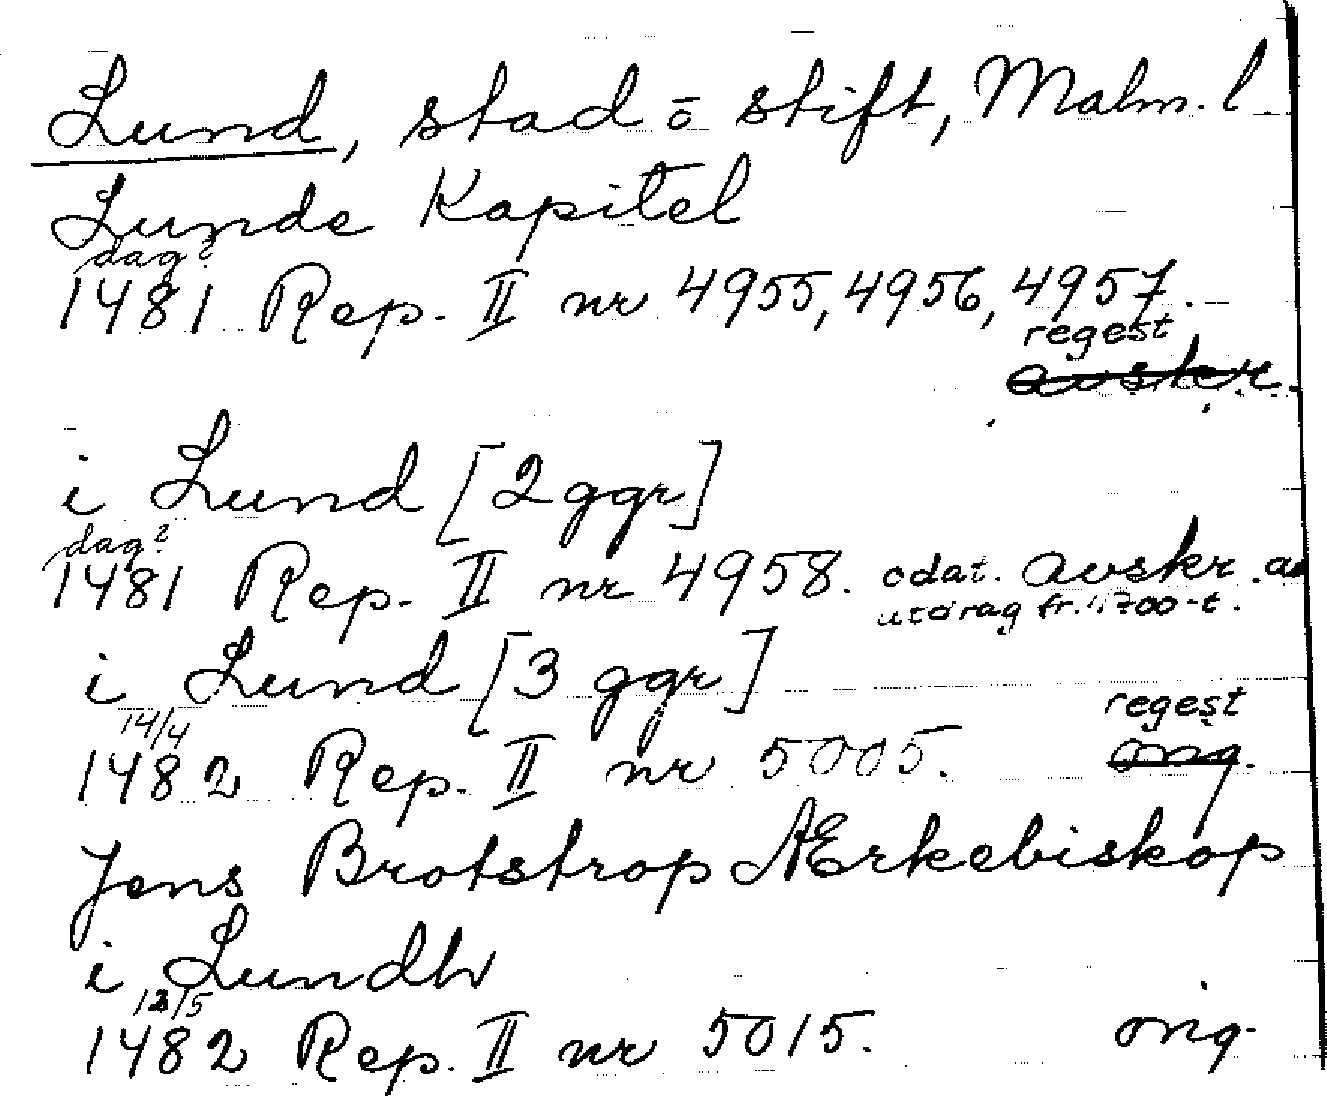 Lund, stad o stift, Malm. l
Lunde Kapitel
dag?
1481 Rep. II nr 4955, 4956, 4957.
regest
avskr.
i Lund [2 ggr]
dag?
1481 Rep. II nr 4958. odat. avskr. av
utdrag fr. 1700-t.
i Lund [3 ggr]
14/4 regest
1482 Rep. II nr 5005. orig.
Jens Brotstrop Ærkebiskop
i Lundh
12/5
1482 Rep. II nr 5015. orig.